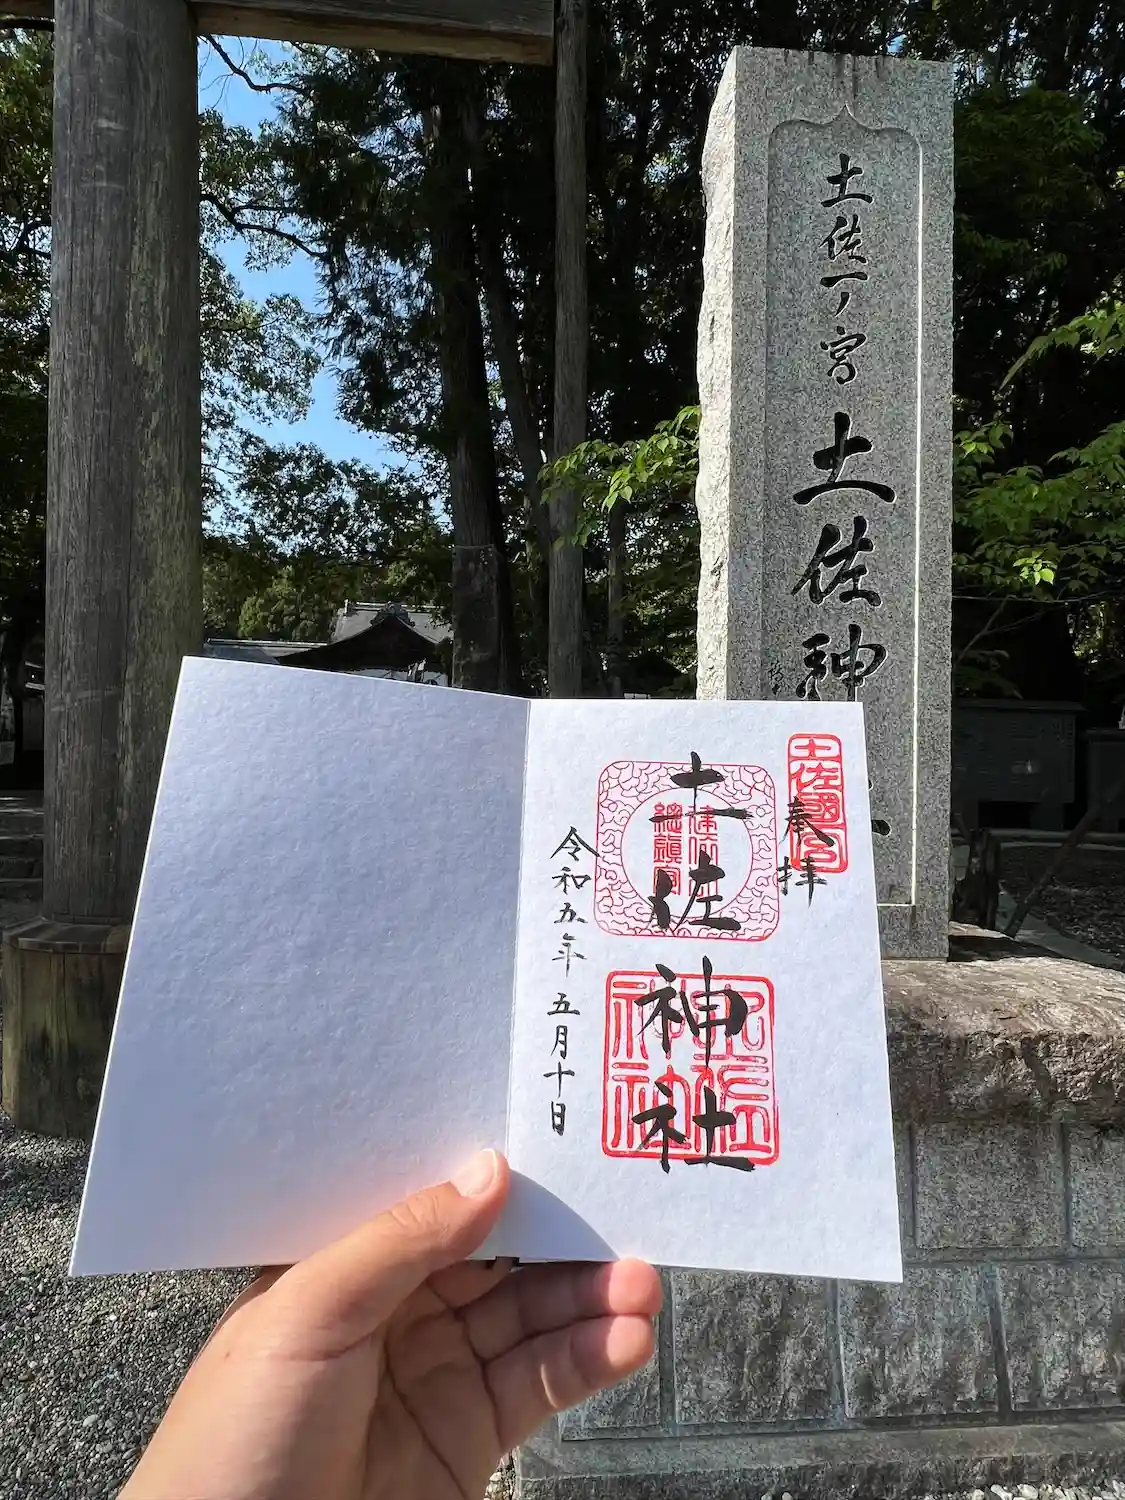 土佐一ノ宮 土佐神
土佐國一ノ宮
奉拝
土佐神社
令和五年 五月十日
土佐神社